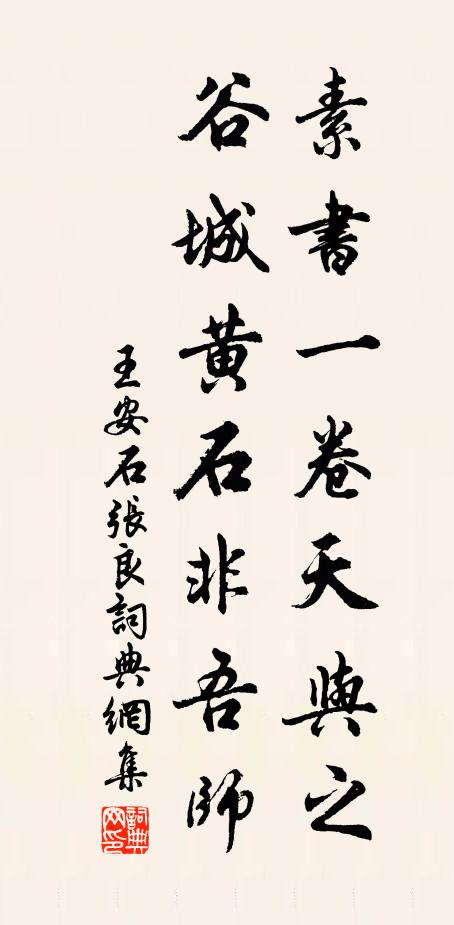 素書一卷天與之
谷城黃石非吾師
王安石張良詞典網集
詞典網印